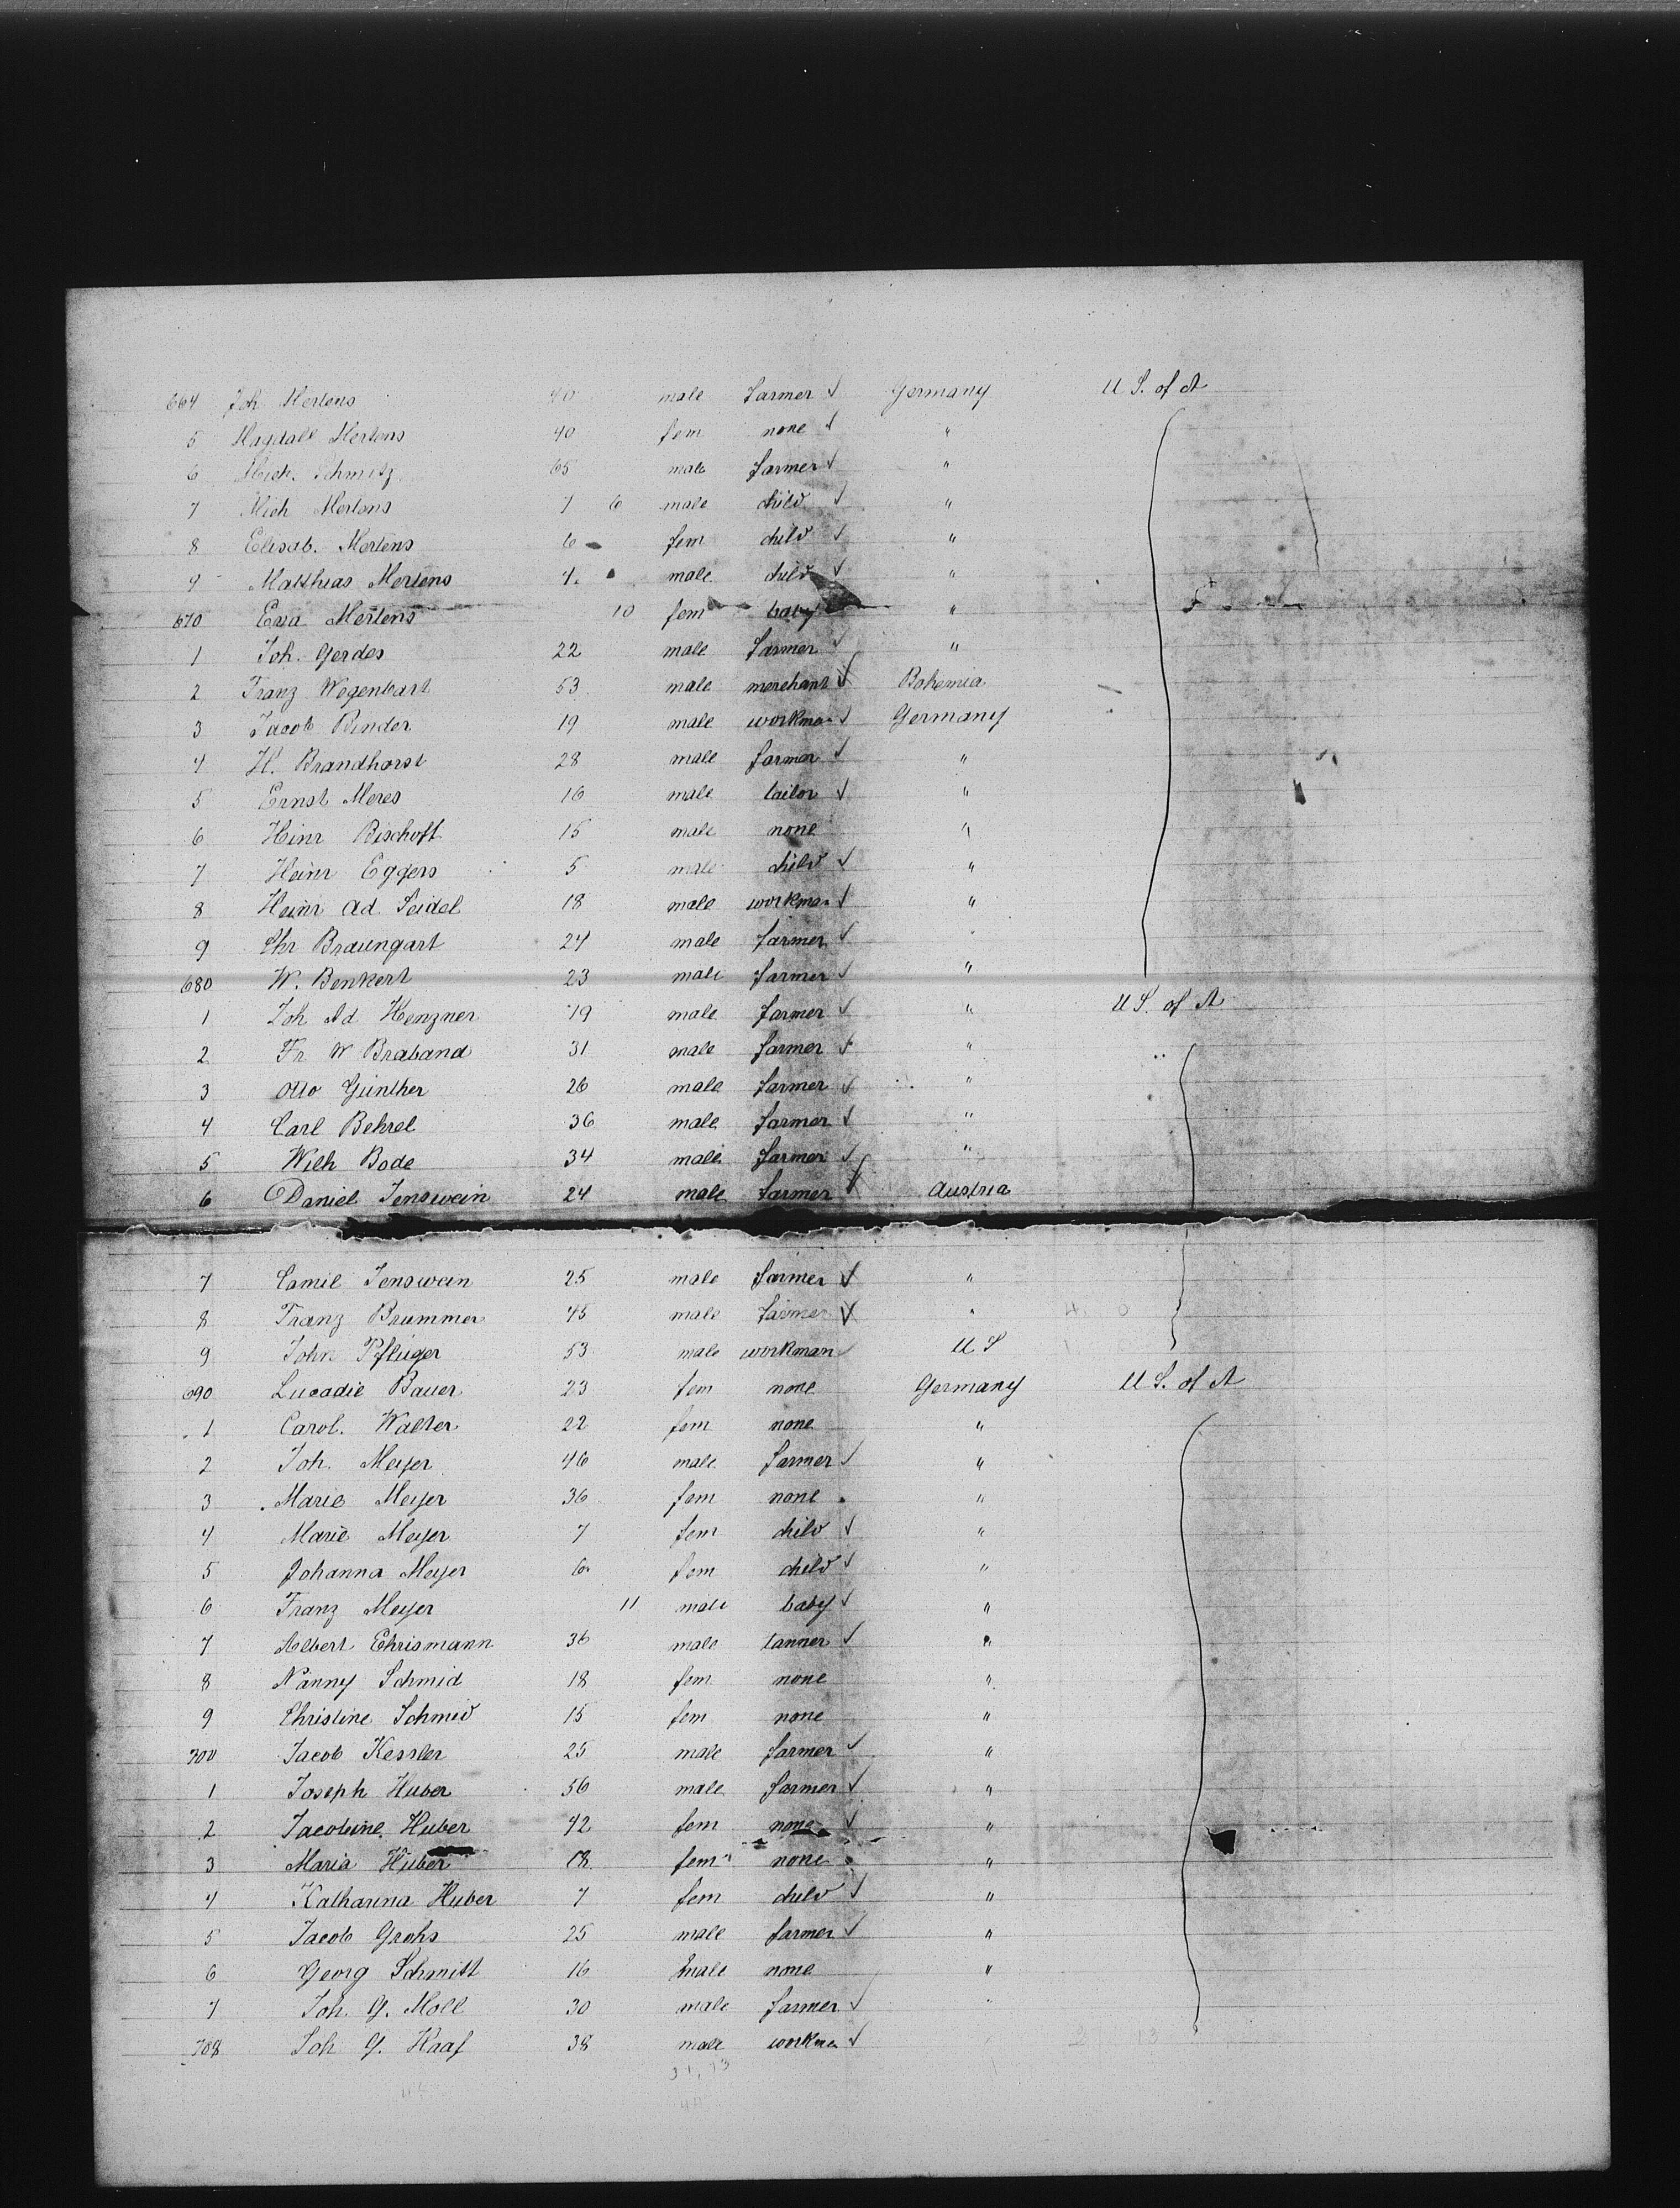 664 Joh Mertens 40 male farmer ✓ Germany U S. of A
5 Magdall Mertens 40 fem none ✓ "
6 Mich. Schmitz 65 male farmer ✓ "
7 Mich Mertens 7 6 male child ✓ "
8 Elisab. Mertens 6 fem child ✓ "
9 Matthias Mertens 4 male child ✓ "
670 Eva Mertens 10 fem baby "
1 Joh. Gerdes 22 male farmer ✓ "
2 Franz Wegenbart 53 male merchant ✓ Bohemia
3 Jacob Binder 19 male workman ✓ Germany
4 H. Brandhorst 28 male farmer ✓ "
5 Ernst Meres 16 male tailor ✓ "
6 Hinr Bischoff 15 male none "
7 Heinr Eggers 5 male child ✓ "
8 Heinr Ad. Seidel 18 male workman ✓ "
9 Chr Braungart 24 male farmer ✓ "
680 W. Benkert 23 male farmer ✓ "
1 Joh Ad Henzner 19 male farmer ✓ " U S. of A
2 Fr W Braband 31 male farmer ✓ "
3 Otto Günther 26 male farmer ✓ "
4 Carl Behrel 36 male farmer ✓ "
5 Wilh Bode 34 male farmer ✓ "
6 Daniel Jenswein 24 male farmer ✓ Austria
7 Camil Jenswein 25 male farmer ✓ "
8 Franz Brummer 45 male farmer ✓ "
9 John Pfluger 53 male workman ✓ U S
690 Lucadie Bauer 23 fem none Germany U S. of A
1 Carol. Walter 22 fem none "
2 Joh. Meyer 46 male farmer ✓ "
3 Marie Meyer 36 fem none "
4 Marie Meyer 7 fem child ✓ "
5 Johanna Meyer 6 fem child ✓ "
6 Franz Meyer 11 male baby ✓ "
7 Albert Ehrismann 36 male tanner ✓ "
8 Nanny Schmid 18 fem none "
9 Christine Schmid 15 fem none "
700 Jacob Kessler 25 male farmer ✓ "
1 Joseph Huber 56 male farmer ✓ "
2 Jacobine Huber 42 fem none ✓ "
3 Maria Huber 18 fem none "
4 Katharina Huber 7 fem child ✓ "
5 Jacob Grohs 25 male farmer ✓ "
6 Georg Schmitt 16 male none "
7 Joh. G. Moll 30 male farmer ✓ "
708 Joh G. Kraf 38 male workman ✓